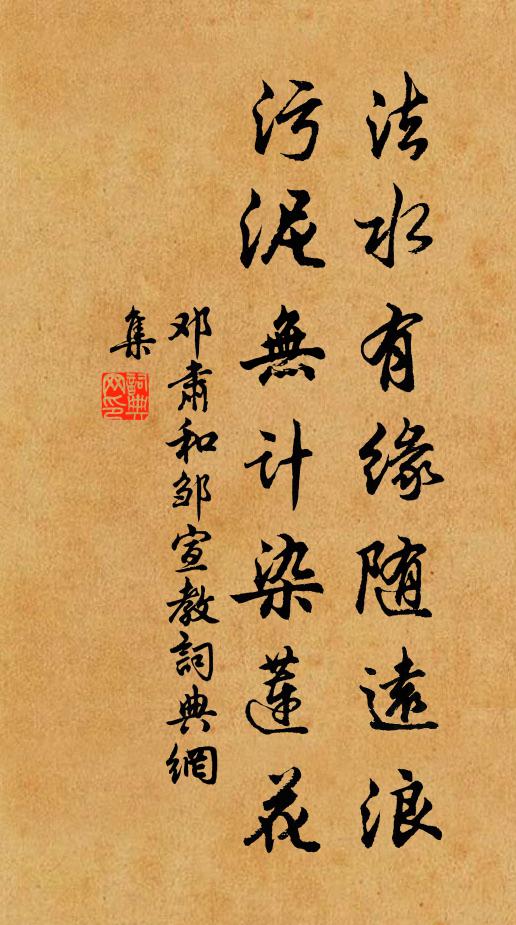 法水有缘随遠浪
污泥無计染蓮花
邓肅和邹宣教詞典網
集
詞典网印